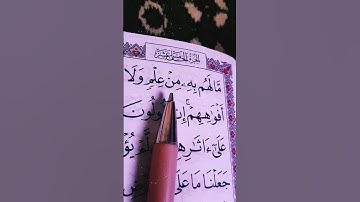 الجزء الخامس عشر
مَّا لَهُم بِهِۦ مِنْ عِلْمٍ وَلَا
أَفْوَٰهِهِمْ ۚ إِن
عَلَىٰٓ ءَاثَٰرِهِ لَّمْ يُؤْ
جَعَلْنَا مَا عَلَى